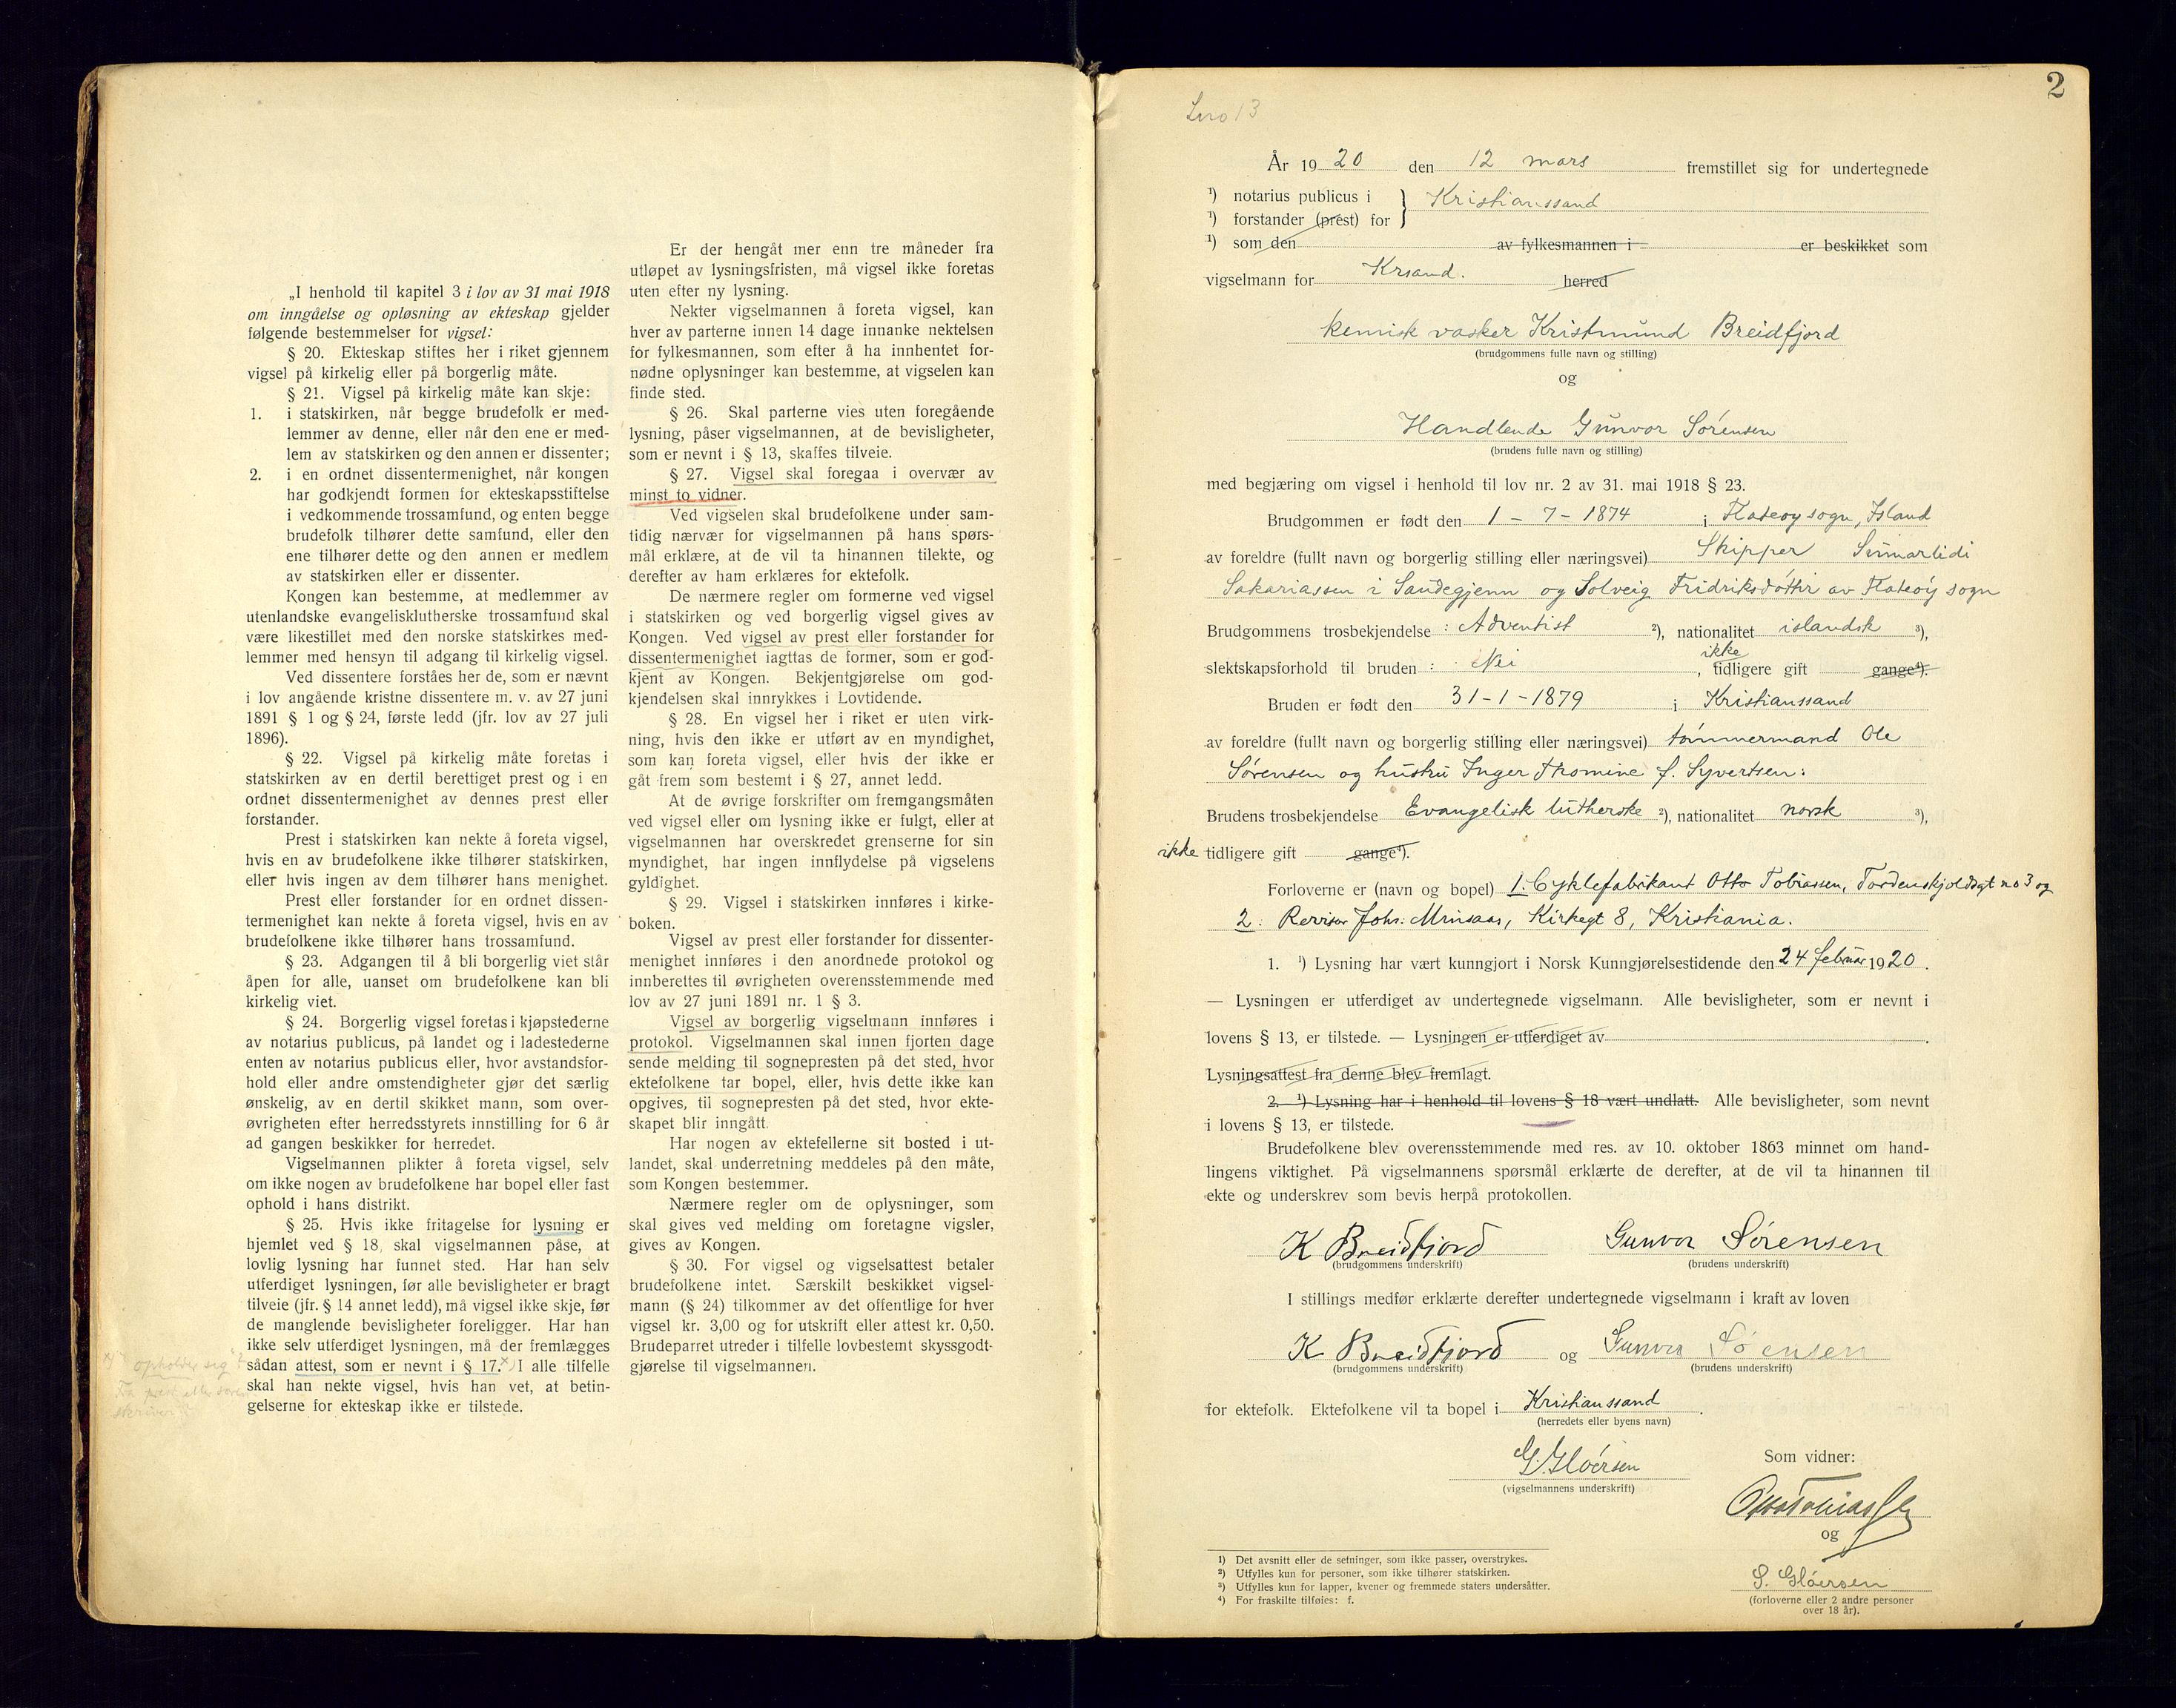 „I henhold til kapitel 3 i lov av 31 mai 1918
om inngåelse og opløsning av ekteskap gjelder
følgende bestemmelser for vigsel:
§ 20. Ekteskap stiftes her i riket gjennem
vigsel på kirkelig eller på borgerlig måte.
§ 21. Vigsel på kirkelig måte kan skje:
1. i statskirken, når begge brudefolk er med-
lemmer av denne, eller når den ene er med-
lem av statskirken og den annen er dissenter;
2. i en ordnet dissentermenighet, når kongen
har godkjendt formen for ekteskapsstiftelse
i vedkommende trossamfund, og enten begge
brudefolk tilhører dette samfund, eller den
ene tilhører dette og den annen er medlem
av statskirken eller er dissenter.
Kongen kan bestemme, at medlemmer av
utenlandske evangelisklutherske trossamfund skal
være likestillet med den norske statskirkes med-
lemmer med hensyn til adgang til kirkelig vigsel.
Ved dissentere forståes her de, som er nævnt
i lov angående kristne dissentere m. v. av 27 juni
1891 § 1 og § 24, første ledd (jfr. lov av 27 juli
1896).
§ 22. Vigsel på kirkelig måte foretas i
statskirken av en dertil berettiget prest og i en
ordnet dissentermenighet av dennes prest eller
forstander.
Prest i statskirken kan nekte å foreta vigsel,
hvis en av brudefolkene ikke tilhører statskirken,
eller hvis ingen av dem tilhører hans menighet.
Prest eller forstander for en ordnet dissen-
termenighet kan nekte å foreta vigsel, hvis en av
brudefolkene ikke tilhører hans trossamfund.
§ 23. Adgangen til å bli borgerlig viet står
åpen for alle, uanset om brudefolkene kan bli
kirkelig viet.
§ 24. Borgerlig vigsel foretas i kjøpstederne
av notarius publicus, på landet og i ladestederne
enten av notarius publicus eller, hvor avstandsfor-
hold eller andre omstendigheter gjør det særlig
ønskelig, av en dertil skikket mann, som over-
øvrigheten efter herredsstyrets innstilling for 6 år
ad gangen beskikker for herredet.
Vigselmannen plikter å foreta vigsel, selv
om ikke nogen av brudefolkene har bopel eller fast
ophold i hans distrikt.
§ 25. Hvis ikke fritagelse for lysning er
hjemlet ved § 18, skal vigselmannen påse, at
lovlig lysning har funnet sted. Har han selv
utferdiget lysningen, før alle bevisligheter er bragt
tilveie (jfr. § 14 annet ledd), må vigsel ikke skje, før
de manglende bevisligheter foreligger. Har han
ikke selv utferdiget lysningen, må der fremlægges
sådan attest, som er nevnt i § 17.x) I alle tilfelle
skal han nekte vigsel, hvis han vet, at betin-
gelserne for ekteskap ikke er tilstede.
x) opholder sig
Er der hengåt mer enn tre måneder fra
utløpet av lysningsfristen, må vigsel ikke foretas
uten efter ny lysning.
Nekter vigselmannen å foreta vigsel, kan
hver av parterne innen 14 dage innanke nektelsen
for fylkesmannen, som efter å ha innhentet for-
nødne oplysninger kan bestemme, at vigselen kan
finde sted.
§ 26. Skal parterne vies uten foregående
lysning, påser vigselmannen, at de bevisligheter,
som er nevnt i § 13, skaffes tilveie.
§ 27. Vigsel skal foregaa i overvær av
minst to vidner.
Ved vigselen skal brudefolkene under sam-
tidig nærvær for vigselmannen på hans spørs-
mål erklære, at de vil ta hinannen tilekte, og
derefter av ham erklæres for ektefolk.
De nærmere regler om formerne ved vigsel
i statskirken og ved borgerlig vigsel gives av
Kongen. Ved vigsel av prest eller forstander for
dissentermenighet iagttas de former, som er god-
kjent av Kongen. Bekjentgjørelse om god-
kjendelsen skal innrykkes i Lovtidende.
§ 28. En vigsel her i riket er uten virk-
ning, hvis den ikke er utført av en myndighet,
som kan foreta vigsel, eller hvis der ikke er
gåt frem som bestemt i § 27, annet ledd.
At de øvrige forskrifter om fremgangsmåten
ved vigsel eller om lysning ikke er fulgt, eller at
vigselmannen har overskredet grenserne for sin
myndighet, har ingen innflydelse på vigselens
gyldighet.
§ 29. Vigsel i statskirken innføres i kirke-
boken.
Vigsel av prest eller forstander for dissenter-
menighet innføres i den anordnede protokol og
innberettes til øvrigheten overensstemmende med
lov av 27 juni 1891 nr. 1 § 3.
Vigsel av borgerlig vigselmann innføres i
protokol. Vigselmannen skal innen fjorten dage
sende melding til sognepresten på det sted, hvor
ektefolkene tar bopel, eller, hvis dette ikke kan
opgives, til sognepresten på det sted, hvor ekte-
skapet blir inngått.
Har nogen av ektefellerne sit bosted i ut-
landet, skal underretning meddeles på den måte,
som Kongen bestemmer.
Nærmere regler om de oplysninger, som
skal gives ved melding om foretagne vigsler,
gives av Kongen.
§ 30. For vigsel og vigselsattest betaler
brudefolkene intet. Særskilt beskikket vigsel-
mann (§ 24) tilkommer av det offentlige for hver
vigsel kr. 3,00 og for utskrift eller attest kr. 0,50.
Brudeparret utreder i tilfelle lovbestemt skyssgodt-
gjørelse til vigselmannen.
2
År 1920 den 12 mars fremstillet sig for undertegnede
¹) notarius publicus i } Kristianssand
¹) forstander (prest) for
¹) som den av fylkesmannen i er beskikket som
vigselmann for Krsand. herred
kemisk vasker Kristmund Breidfjord
(brudgommens fulle navn og stilling)
og
Handlende Gunvor Sørensen
(brudens fulle navn og stilling)
med begjæring om vigsel i henhold til lov nr. 2 av 31. mai 1918 § 23.
Brudgommen er født den 1 - 7 - 1874 i Flateøy sogn, Island
av foreldre (fullt navn og borgerlig stilling eller næringsvei) Skipper Sumarlidi
Sakariassen i Sandegjenn og Solveig Fridriksdóttir av Flateøy sogn
Brudgommens trosbekjendelse : Adventist ²), nationalitet islandsk ³),
slektskapsforhold til bruden : Nei , ikke tidligere gift gange⁴).
Bruden er født den 31-1-1879 i Kristianssand
av foreldre (fullt navn og borgerlig stilling eller næringsvei) tømmermand Ole
Sørensen og hustru Inger Thomine f. Syvertsen:
Brudens trosbekjendelse Evangelisk lutherske ²), nationalitet norsk ³),
ikke tidligere gift gange⁴).
Forloverne er (navn og bopel) 1: Cyklefabrikant Otto Tobiassen, Tordenskjoldsgt no 3 og
2: Revisor Johs: Mrisaas, Kirkegt 8, Kristiania.
1. ¹) Lysning har vært kunngjort i Norsk Kunngjørelsestidende den 24 februar 1920.
— Lysningen er utferdiget av undertegnede vigselmann. Alle bevisligheter, som er nevnt i
lovens § 13, er tilstede. — Lysningen er utferdiget av .
Lysningsattest fra denne blev fremlagt.
2. ¹) Lysning har i henhold til lovens § 18 vært undlatt. Alle bevisligheter, som nevnt
i lovens § 13, er tilstede.
Brudefolkene blev overensstemmende med res. av 10. oktober 1863 minnet om hand-
lingens viktighet. På vigselmannens spørsmål erklærte de derefter, at de vil ta hinannen til
ekte og underskrev som bevis herpå protokollen.
K Breidfjord Gunvor Sørensen
(brudgommens underskrift) (brudens underskrift)
I stillings medfør erklærte derefter undertegnede vigselmann i kraft av loven
K Breidfjord og Gunvor Sørensen
(brudgommens underskrift) (brudens underskrift)
for ektefolk. Ektefolkene vil ta bopel i Kristianssand.
(herredets eller byens navn)
G. Gløersen
(vigselmannens underskrift)
Som vidner:
Otto Tobiassen
og
S. Gløersen
(forloverne eller 2 andre personer
over 18 år).
¹) Det avsnitt eller de setninger, som ikke passer, overstrykes.
²) Utfylles kun for personer, som ikke tilhører statskirken.
³) Utfylles kun for lapper, kvener og fremmede staters undersåtter.
⁴) For fraskilte tilføies: f.